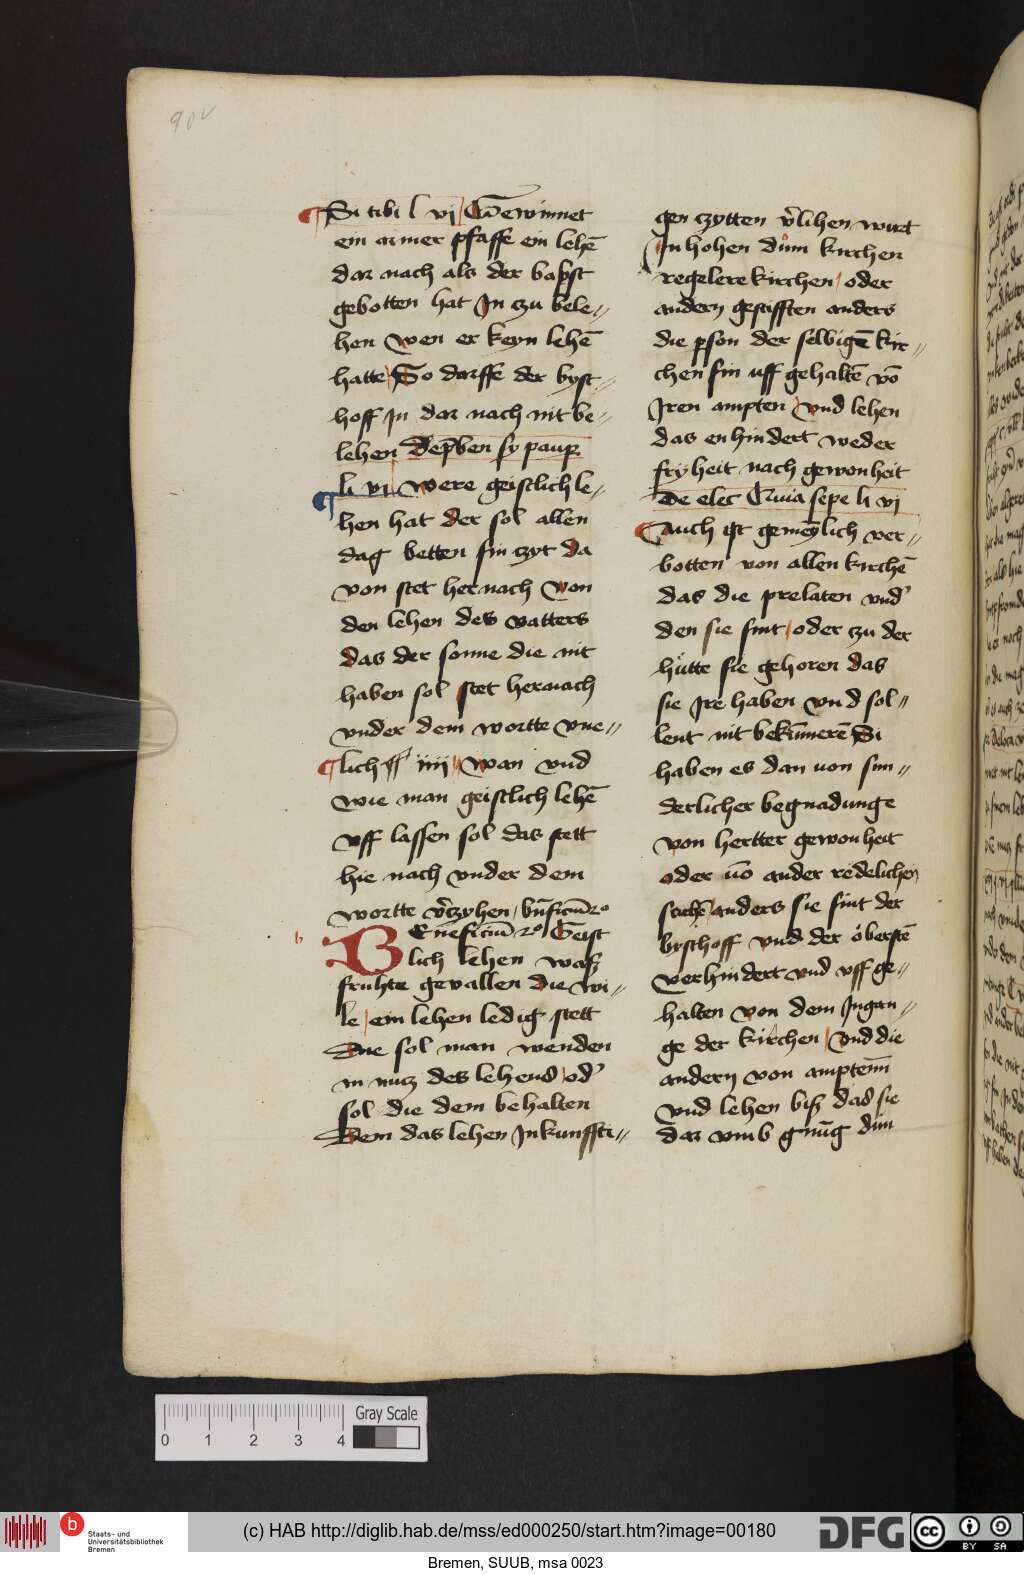 90v
Si tibi l vj Gewinnet
ein armer pfaffe ein lehē
dar nach als der bapst
gebotten hat In czu bele-
hen wen er keyn lehē
hatte So dorffe der bysc-
hoff In dar nach nit be-
lehen De p̄ben si paup
li vi were geistlich le-
hen hat der sol allen
dag betten sin czyt da
von stet her nach von
den lehen des vatters
das der sonne die nit
haben sol stet hernach
vnder dem wortte vne-
lich ff iiij wan vnd
wie man geistlich lehē
vff lassen sol das stett
hie nach vnder dem
wortte v̄czyhen
b
BEneficiū Geist
lich lehen waß
fruhte gevallen die wi-
le ein lehen ledig stett
Die sol man wenden
in nucz des lehens od'
sol die dem behalten
Dem das lehen In kunffti-
gen czytten v̄lihen wirt
In hohen dům kirchen
regelere kirchen oder
andern gestifften anders
die pson der selbigē kir-
chen sin uff gehaltē vō
Iren ampten vnd lehen
das en hindert weder
fryheit nach gewonheit
De elec Cuia sepe li vj
Auch ist gemeȳlich ver-
botten von allen kirchē
das die prelaten vnd'
den sie sint oder zu der
hůtte sie gehoren das
sie Ire haben vnd sol-
lent nit bekūmerē Si
haben es dan uon sun-
derlicher begnadunge
von hertter gewonheit
oder uō ander redelichen
sachē anders sie sint der
byschoff vnd der oberstē
verhindert vnd vff ge-
halten von dem Ingan-
ge der kirchen vnd die
andern von amptenn
vnd lehen biß das sie
dar vmb gnůg důn
0 1 2 3 4
Gray Scale
b
Staats- und
Universitätsbibliothek
Bremen
(c) HAB http://diglib.hab.de/mss/ed000250/start.htm?image=00180
DFG
cc
BY SA
Bremen, SUUB, msa 0023